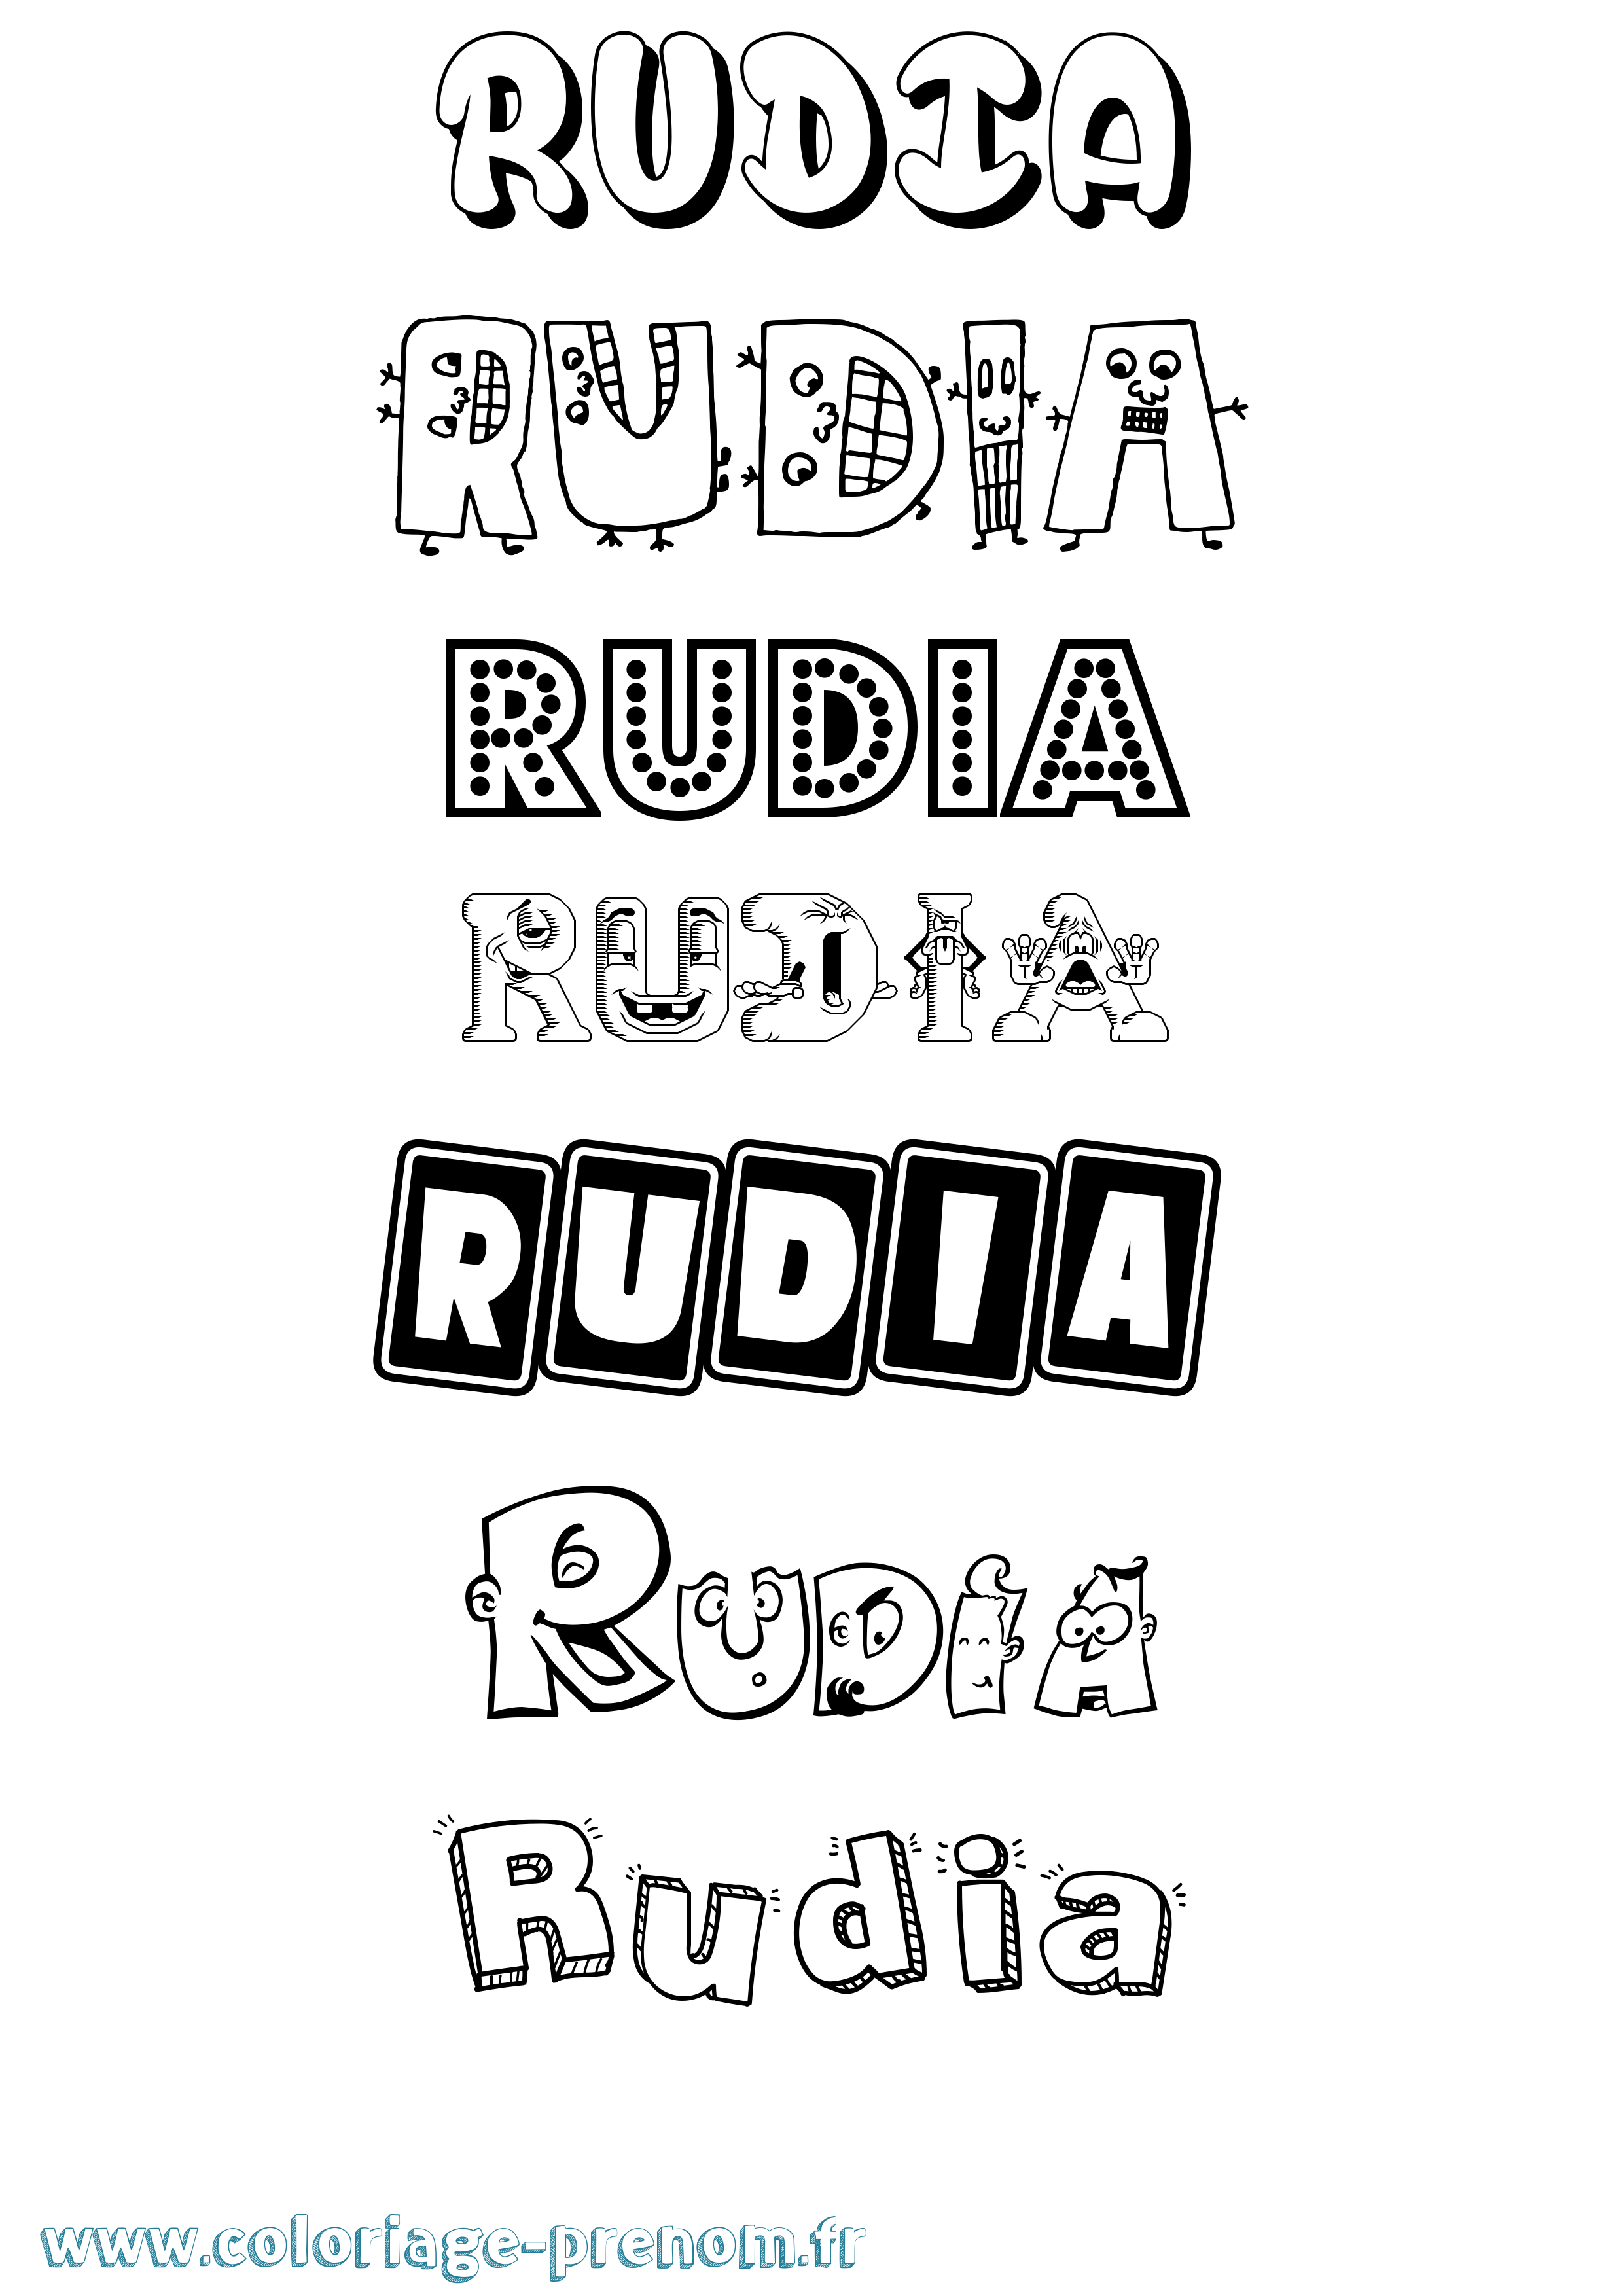 RUDIA
RUDIA
RUDIA
RUDIA
RUDIA
RUDIA
Rudia
www.coloriage-prenom.fr